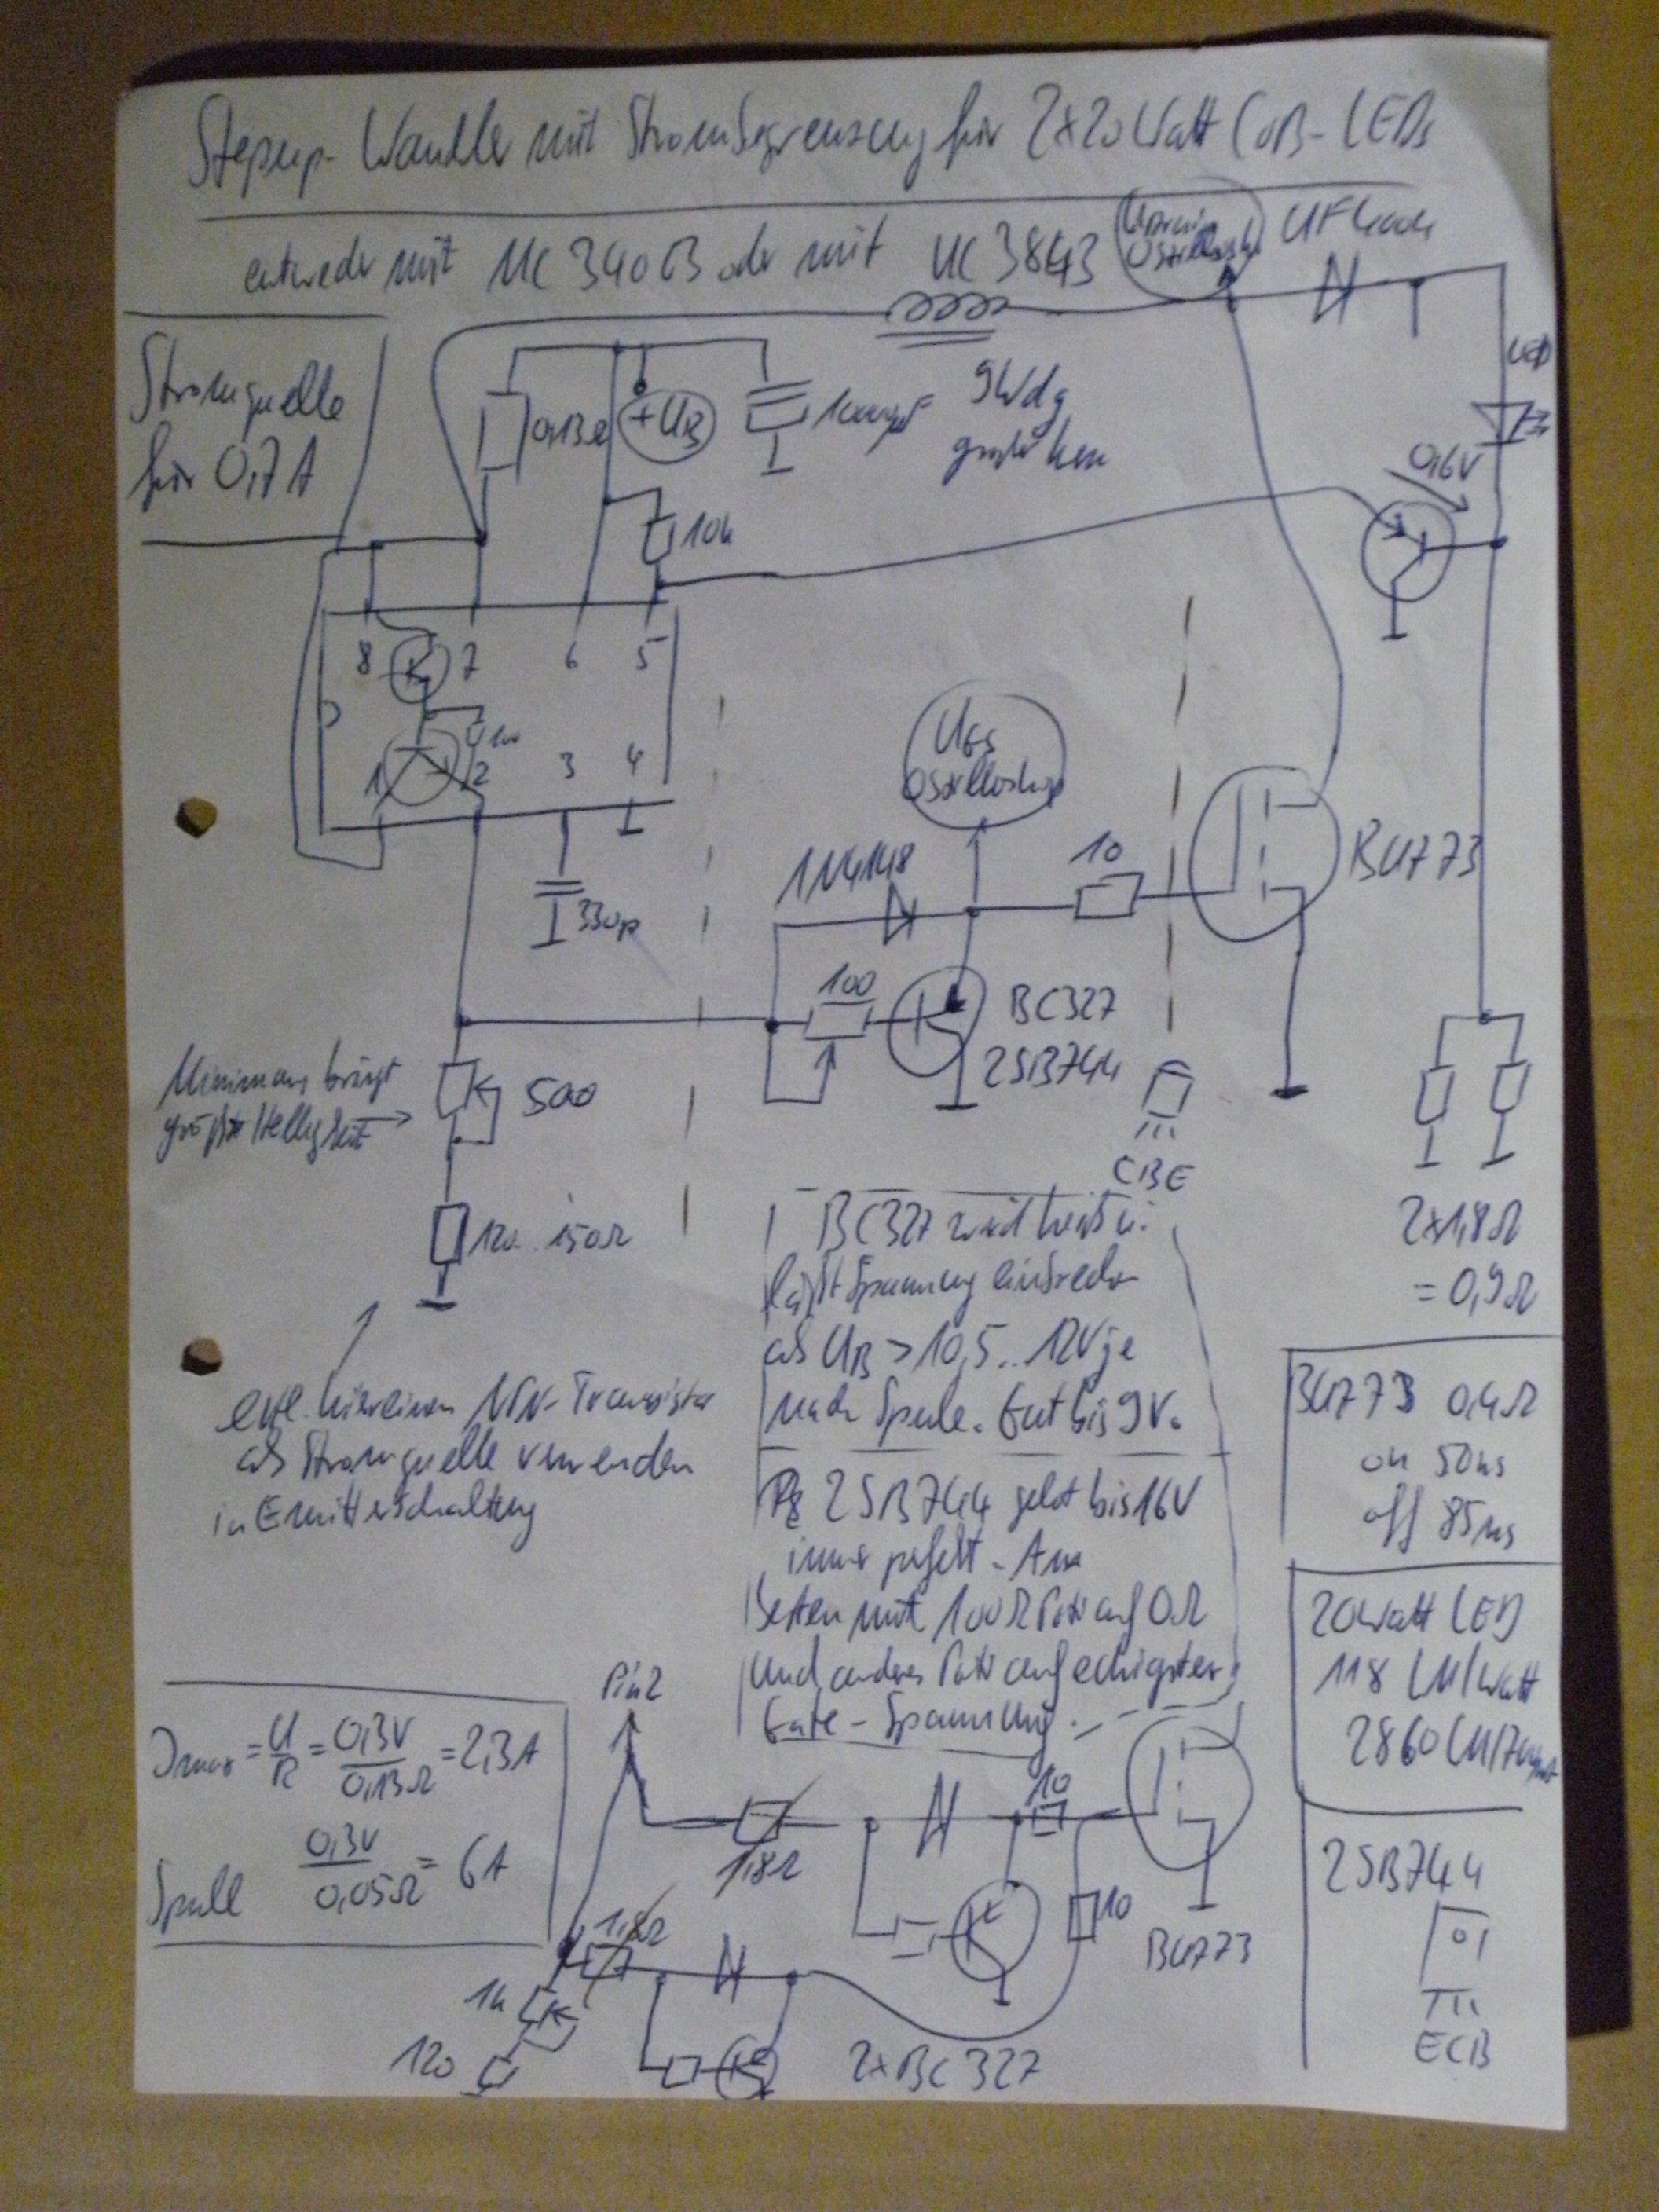 Stepup-Wandler mit Strombegrenzung für 2x20Watt COB-LEDs
entweder mit MC 34063 oder mit UC3843
UDrain
Oszilloskop
UF400
Stromquelle
für 0,7A
0,13Ω
+UB
1000µF
9Wdg
großer Kern
LED
0,6V
10k
8 7 6 5
100
1 2 3 4
UGS
Oszilloskop
330p
1N4148
10
BUZ73
100
BC327
2SB744
CBE
Minimum bringt
größte Helligkeit
500
120..150Ω
2x1,8Ω
= 0,9Ω
evtl. hier einen NPN-Transistor
als Stromquelle verwenden
in Emitterschaltung
BC327 wird heiß u.
läßt Spannung einbrechen
als UB > 10,5..12V je
nach Spule. Gut bis 9V.
2SB744 geht bis 16V
immer perfekt. Am
Besten mit 100Ω Poti auf 0Ω
und anderes Poti auf eckigster
Gate-Spannung.
BUZ73 0,4Ω
on 50ns
off 85ns
20Watt LED
118 LM/Watt
2860 LM/
2SB744
ECB
Imax = U/R = 0,3V/0,13Ω = 2,3A
Spule 0,3V/0,05Ω = 6A
Pin2
1,8Ω
10
10
BUZ73
1,8Ω
1k
120
2xBC327